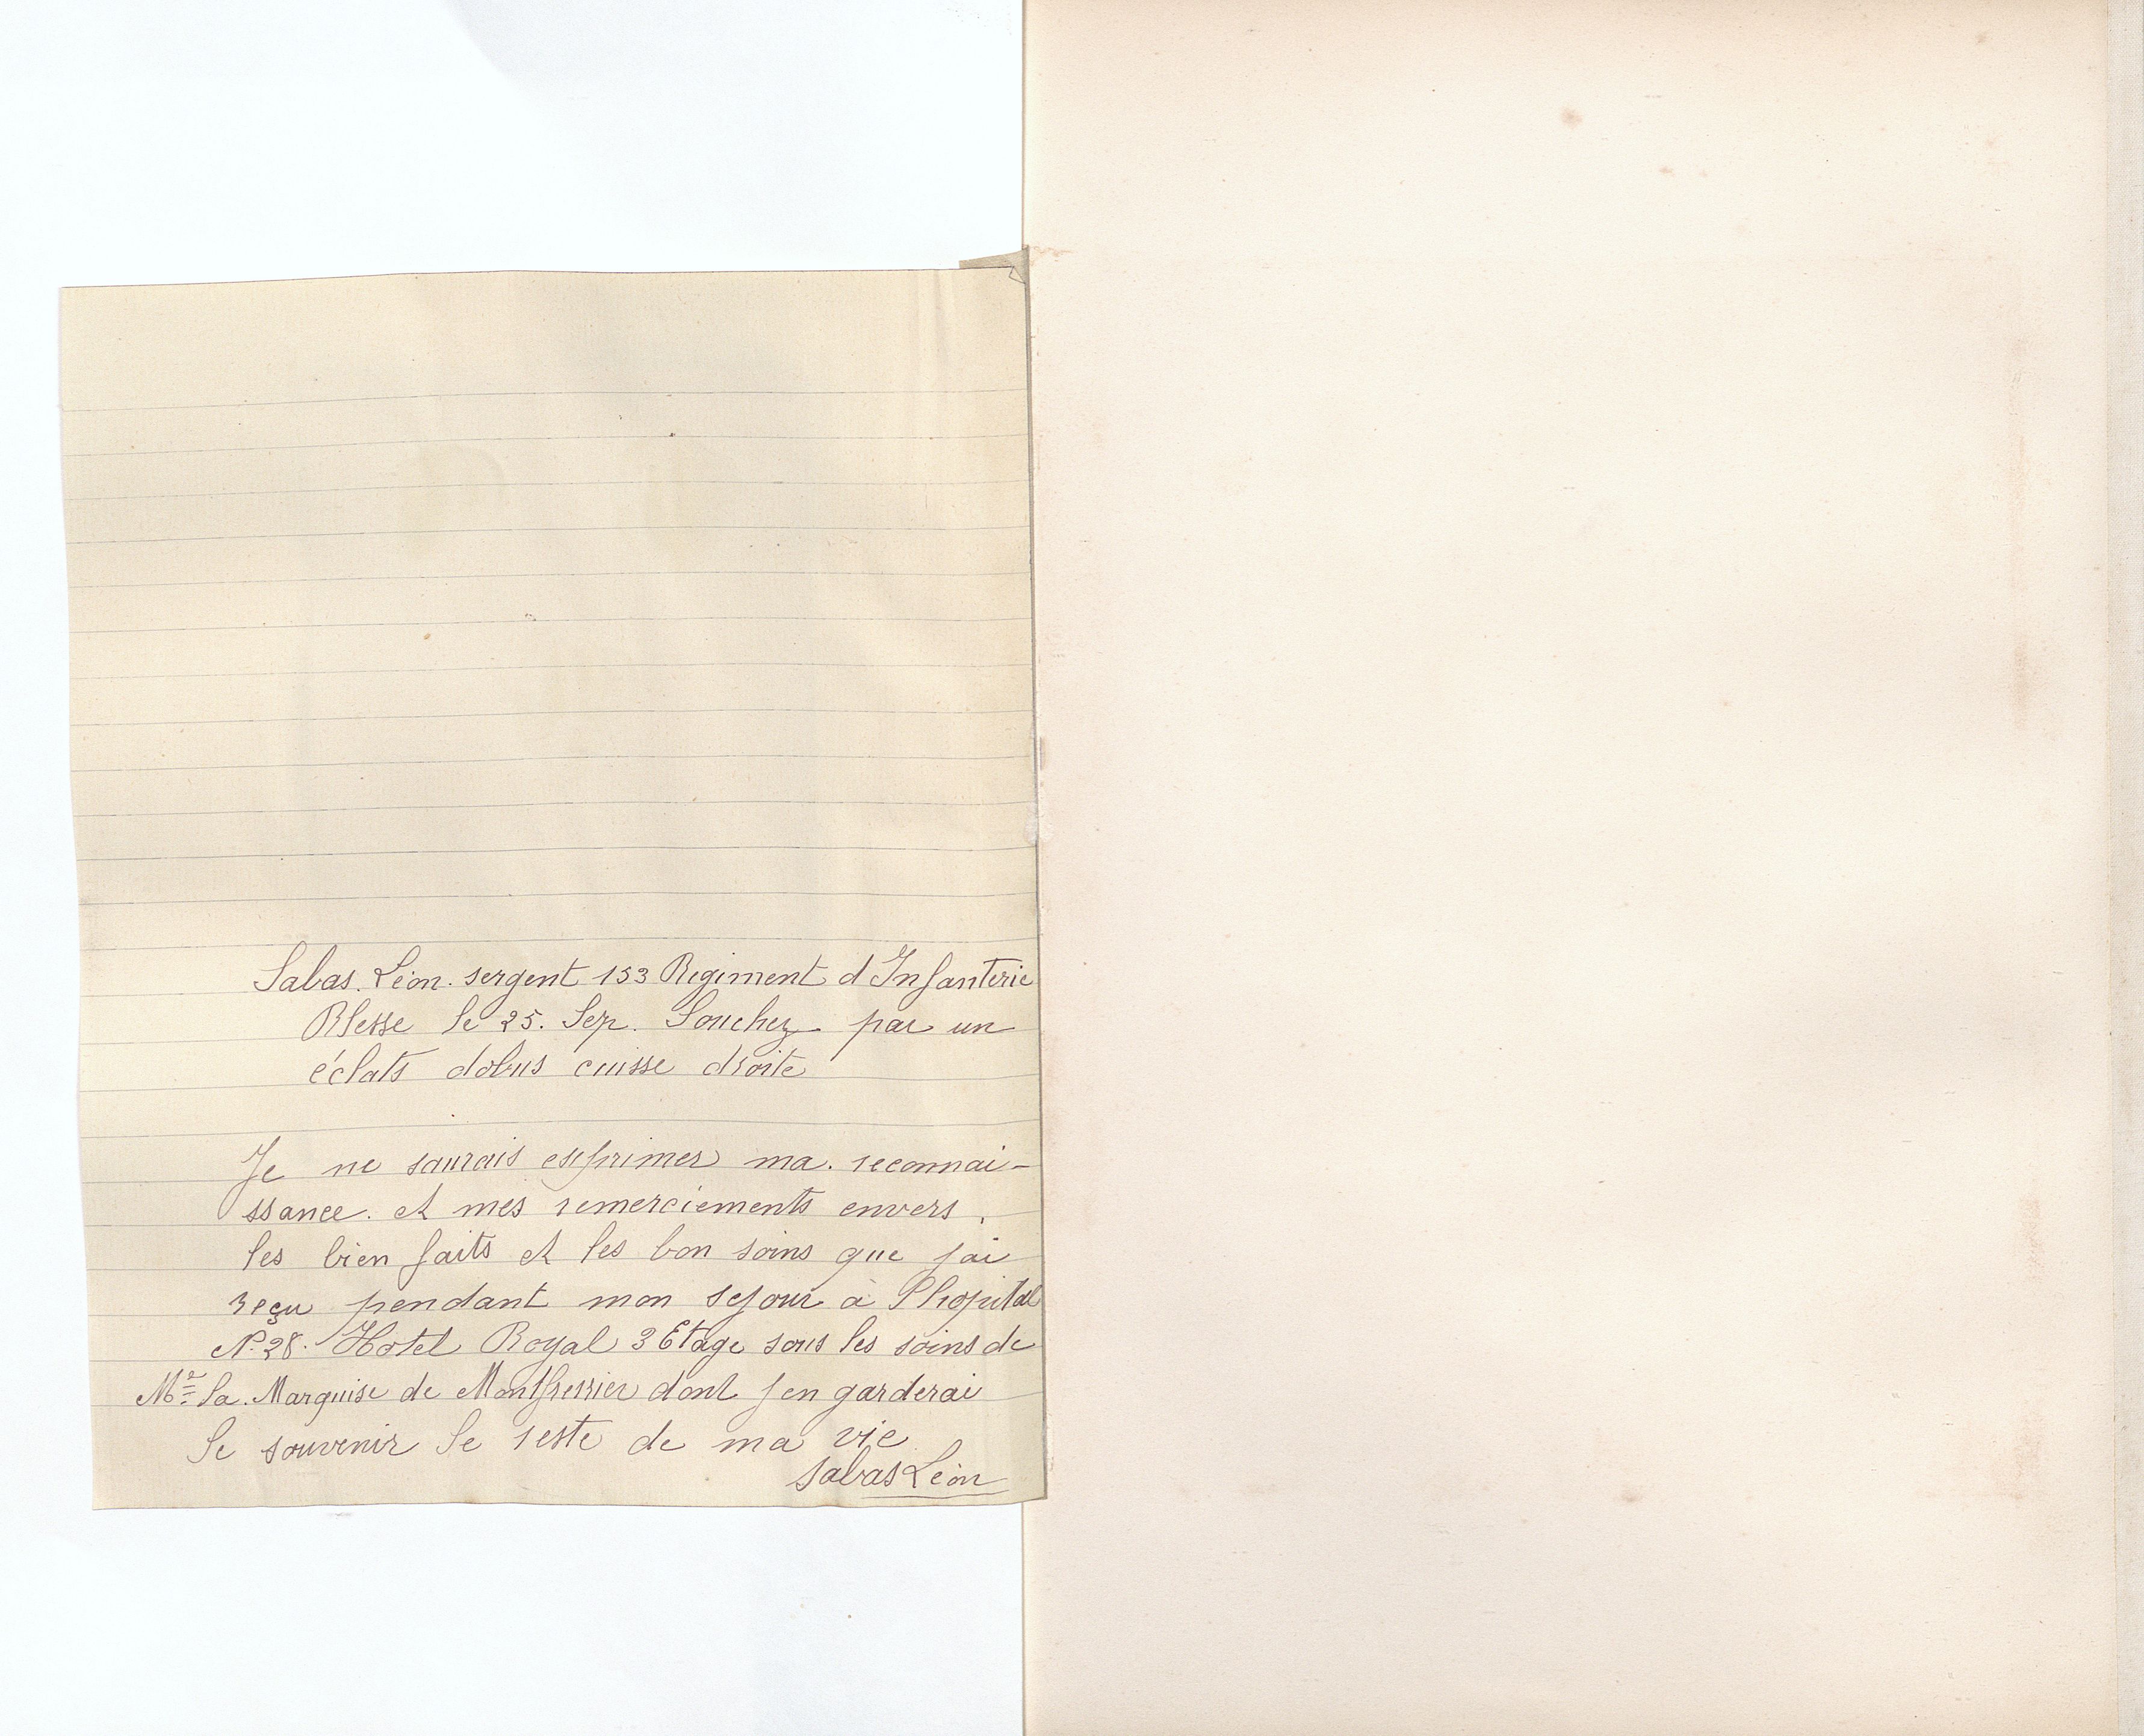 Sabas. Léon. sergent 153 Regiment d Infanterie
Blesse le 25. Sep. Souchez par un
éclats dobus cuisse droite
Je ne saurais exprimer ma. reconnai-
ssance. et mes remerciements envers.
les bien faits et les bon soins que jai
reçu pendant mon sejour à l'hopital
N. 28. Hotel Royal 3 Etage sous les soins de
Me la. Marquise de Montferrier dont j en garderai
le souvenir le reste de ma vie
Sabas Léon